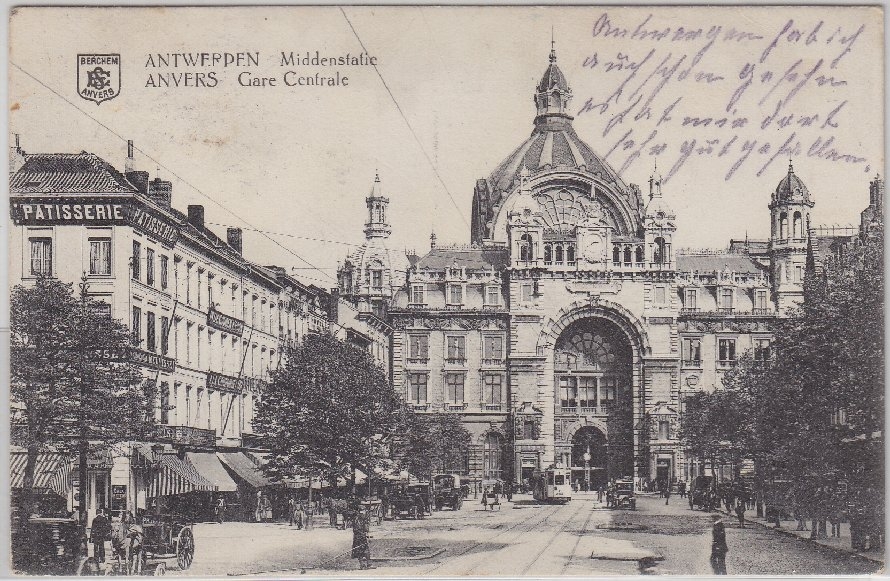 BERCHEM
ANVERS
ANTWERPEN Middenstatie
ANVERS Gare Centrale
Antwerpen hab ich
auch schon gesehn
es hat mir dort
sehr gut gefallen.
PATISSERIE
PATISSERIE